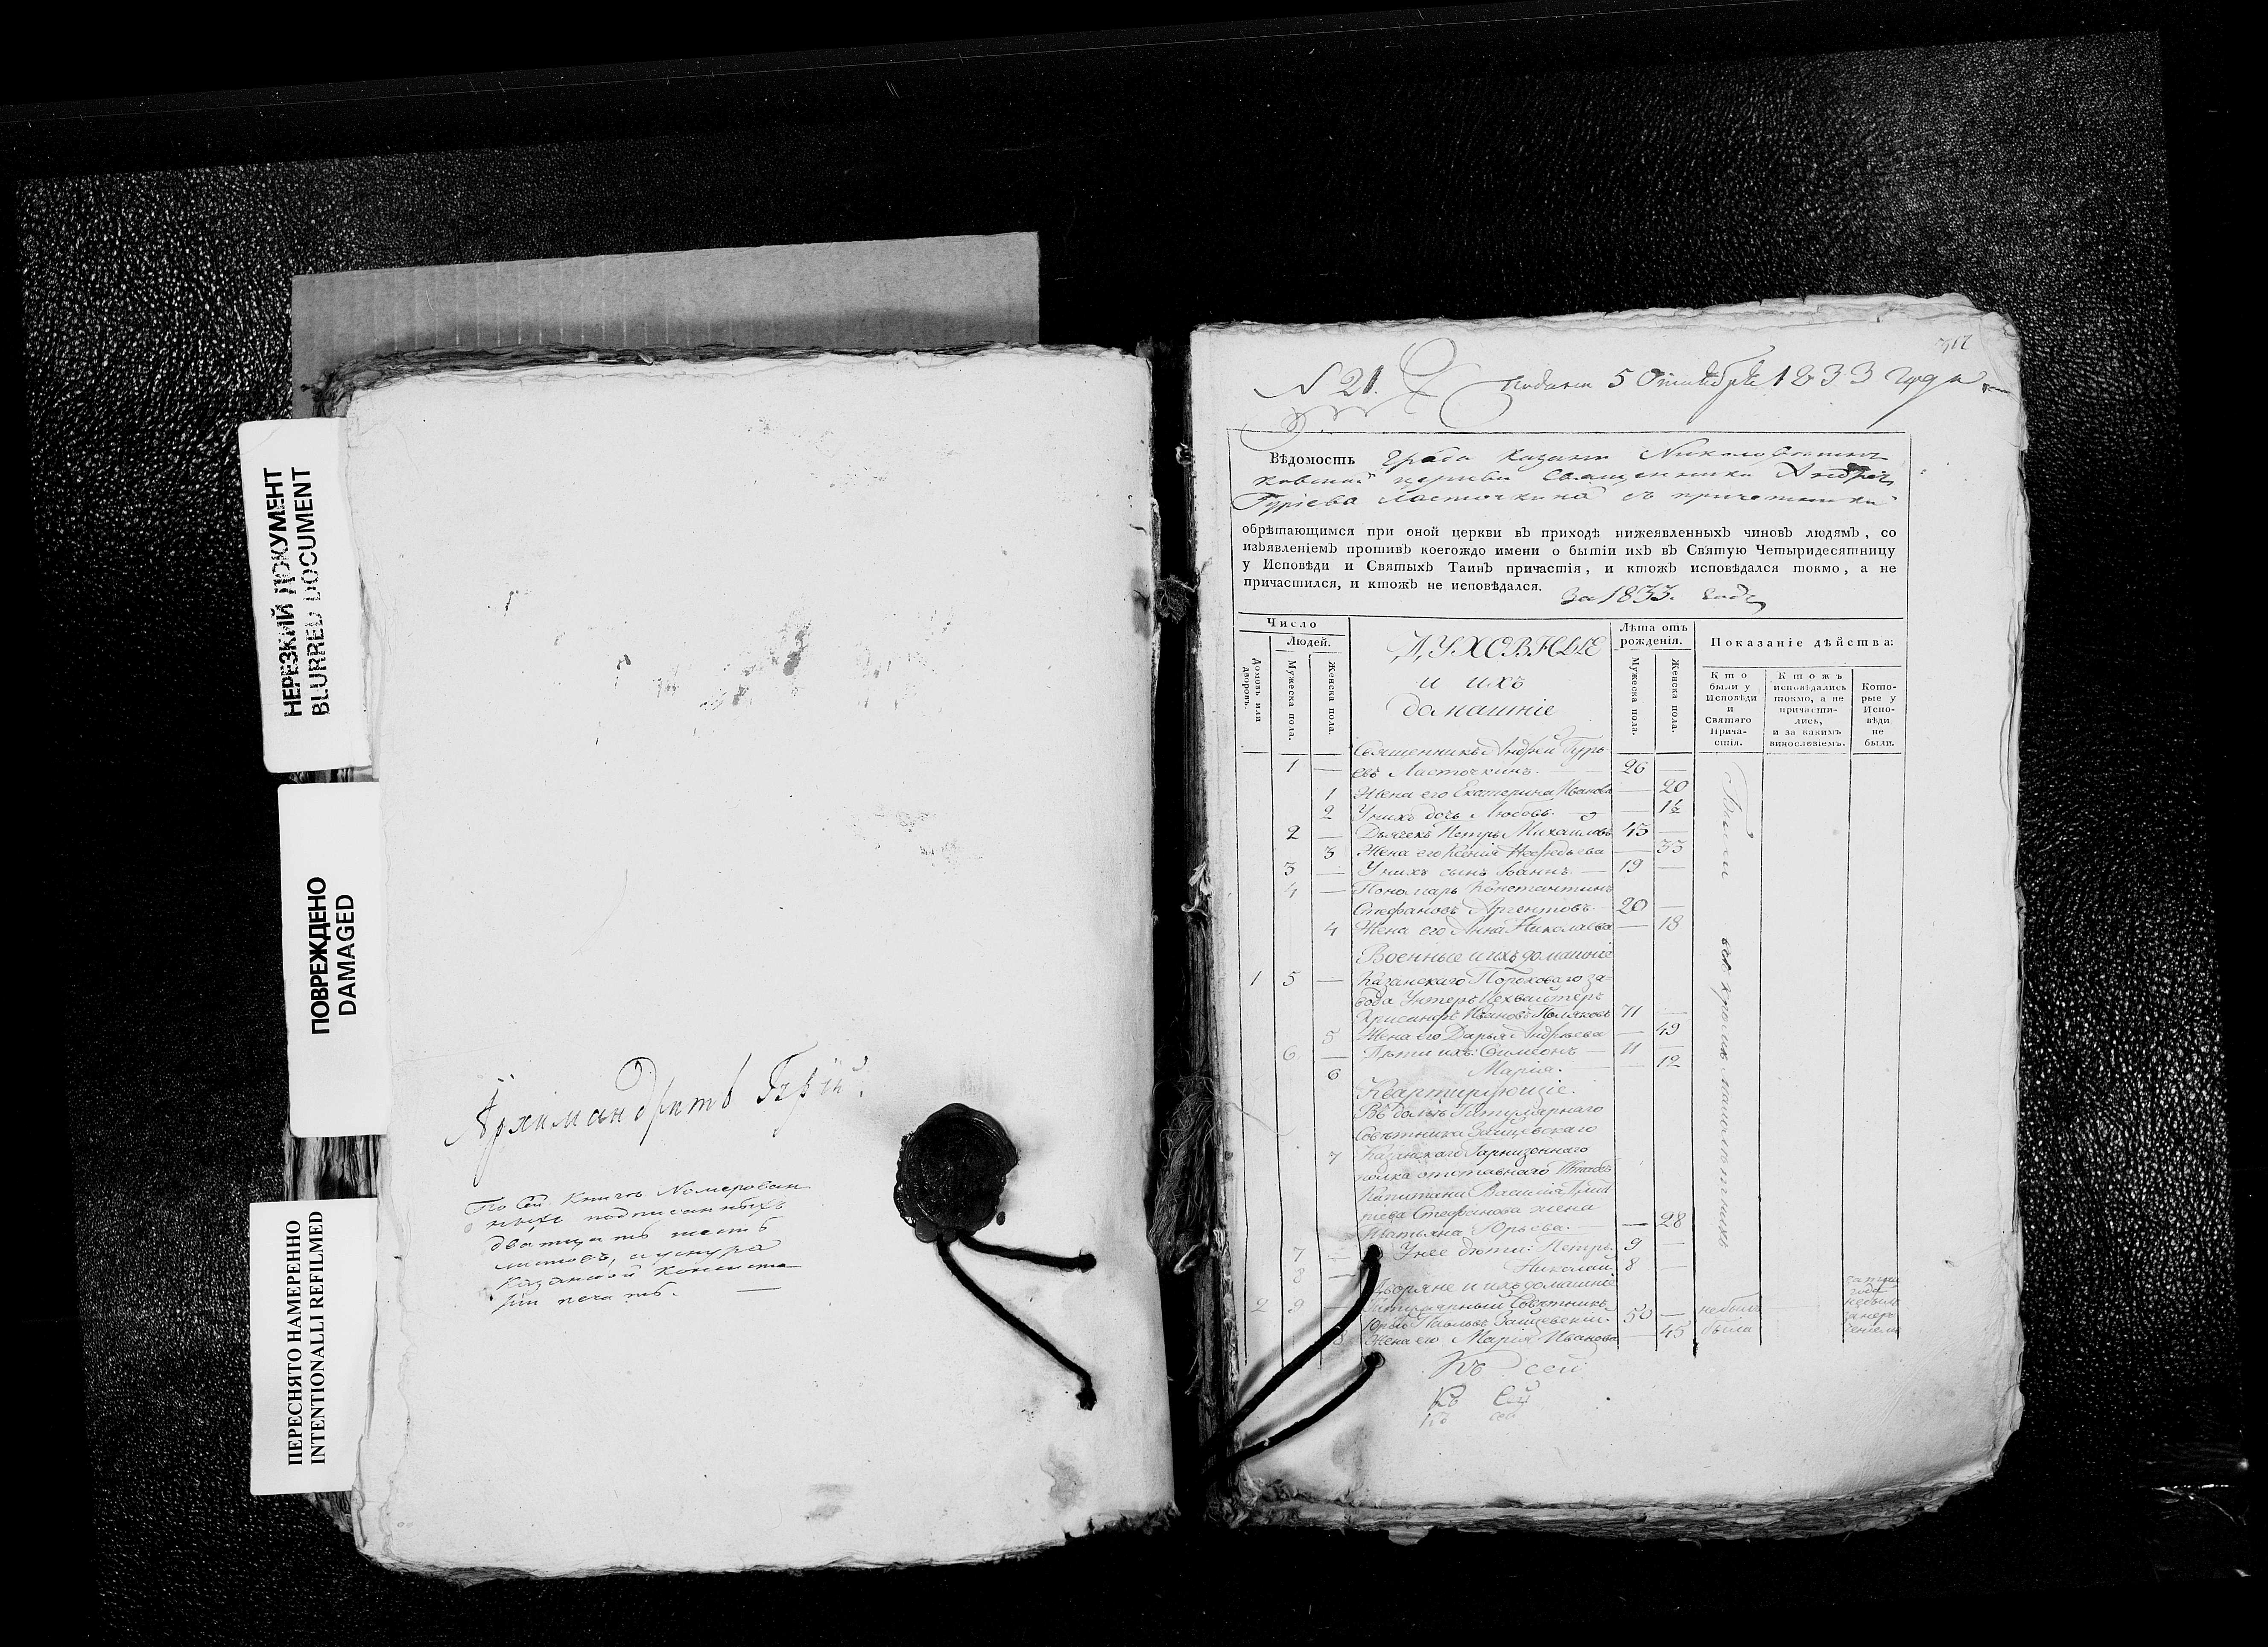 НЕРЕЗКИЙ ДОКУМЕНТ
BLURRED DOCUMENT
ПОВРЕЖДЕНО
DAMAGED
ПЕРЕСНЯТО НАМЕРЕННО
INTENTIONALLI REFILMED
Архимандритъ Гурій.
По сей книгѣ Номерован
ныхъ подписанныхъ
дватцать шесть
листовъ, а уснура
Казанской Консисто
ріи печать.
N 21. Подана 5 Октября 1833 года
Вѣдомость Града Казани Николо
ковской церкви Священника Андрея
Гуріева Ласточкина съ причетники
обрѣтающимся при оной церкви въ приходѣ нижеявленныхъ чиновъ людямъ, со
изъявленіемъ противъ коегождо имени о бытіи ихъ въ Святую Четыридесятницу
у Исповѣди и Святыхъ Таинъ причастія, и ктожъ исповѣдался токмо, а не
причастился, и ктожъ не исповѣдался. За 1833. годъ
Число
Людей.
Домовъ или дворовъ.
Мужеска пола.
Женска пола.
ДУХОВНЫЕ
и ихъ
домашніе
Лѣта отъ рожденія.
Мужеска пола.
Женска пола.
Показаніе дѣйства:
Кто были у Исповѣди и Святаго Причастія.
Ктожъ исповѣдались токмо, а не причастились, и за какимъ винословіемъ.
Которые у Исповѣди не были.
Священникъ Андрей Гурь
1 — евъ Ласточкинъ. 26 —
1 Жена его Екатерина Иванова — 20
2 У нихъ дочь Любовь. — 1½
2 — Дьячекъ Петръ Михаиловъ 45 —
3 Жена его Ксенія Нефедьева — 35
3 — У нихъ сынъ Іоаннъ. 19 —
4 — Пономарь Константинъ
Стефановъ Аргентовъ. 20 —
4 Жена его Анна Николаева — 18
Военные и ихъ домашніе
1 5 — Казанскаго Пороховаго за
вода Унтеръ Цехвахтеръ
Хрисанфъ Ивановъ Поляковъ 71 —
5 Жена его Дарья Андреева — 49
6 — Дѣти ихъ: Симеонъ 11 —
6 Марія. — 12
Квартирующіе.
Въ домѣ Титулярнаго
Совѣтника Зайцевскаго
7 Казанскаго Гарнизоннаго
полка отставнаго Штабсъ
Капитана Василія
Стефанова жена
Татьяна Юрьева. — 28
7 — У нее дѣти: Петръ. 9 —
8 — Николай. 8 —
Дворяне и ихъ домашніе
2 9 — Титулярный Совѣтникъ
Юрій Павловъ Зайцевскій. 50 — небылъ
8 Жена его Марія Иванова — 45 была
Были
Къ сей
Къ Сей
Къ сей